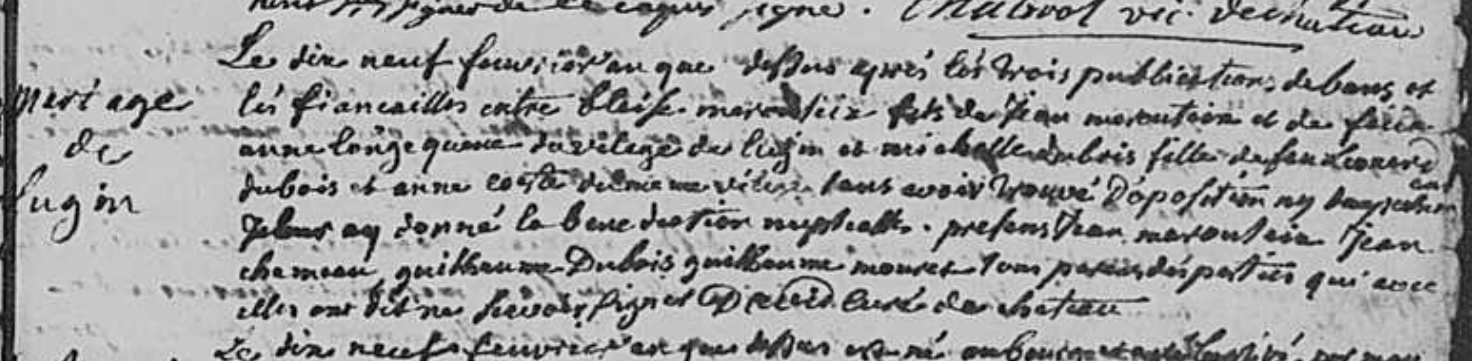 signer de ce requis signé. Chabrol vic.
Le dix neuf feuvrier an que dessus après les trois publications de bans et
mariage
de
lugin
les fiancailles entre bleise maronteix fils de Jean maronteix et de feue
anne longequeue du vilage de lugin et michelle dubois fille de feu Leonard
dubois et anne coste du meme vilage sans avoir trouvé d'oposition ny empechement
Je leur ay donné la benediction nuptialle. presens Jean maronteix Jean
chameau, guilheaume Dubois guilheaume mouret tous parens des parties qui avec
elles ont dit ne scavoir signer curé de chateau
Le dix neuf feuvrier an que dessus est né au bourg